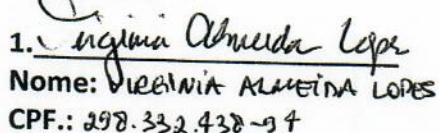 1. Virginia Almeida Lopes
Nome: VIRGINIA ALMEIDA LOPES
CPF.: 298.332.438-94